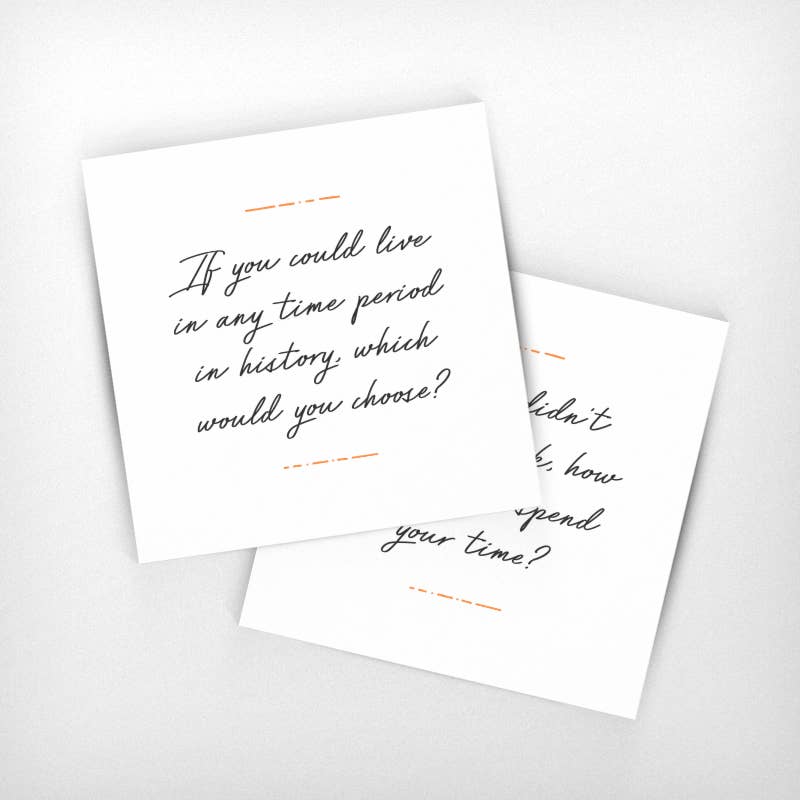 If you could live
in any time period
in history, which
would you choose?
didn't
how
spend
your time?